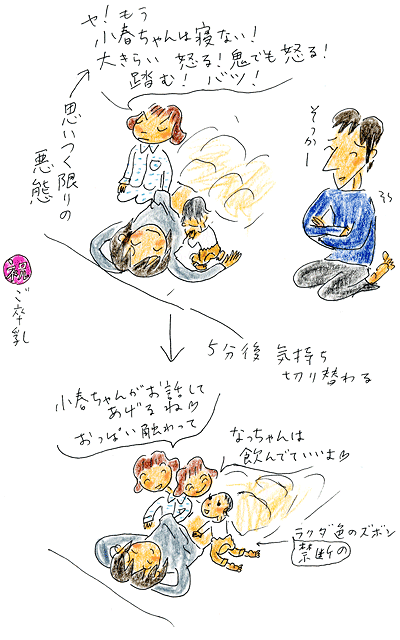 ヤ!もう
小春ちゃんは寝ない!
大きらい 怒る!鬼でも怒る!
踏む! バツ!
思いつく限りの
悪態
そっかー
祝
ご卒乳
5分後 気持ち
切り替わる
小春ちゃんがお話して
あげるね♡
おっぱい触わって
なっちゃんは
飲んでていいよ♡
ラクダ色のズボン
禁断の